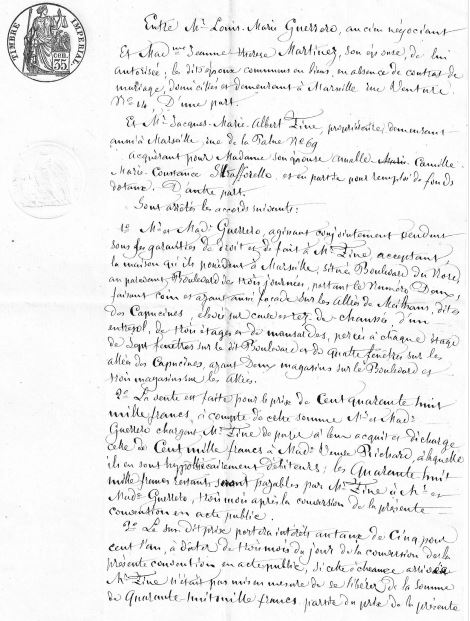 TIMBRE IMPERIAL
35
Entre Mr. Louis Marie Guerrero, ancien négociant
Et Madme Jeanne Thérèse Martinez, son épouse, de lui
autorisée; les dits époux communs en biens, en absence de contrat de
mariage, domiciliés et demeurant à Marseille rue Venture
No 14. D'une part.
Et Mr. Jacques Marie Albert Fine, propriétaire, demeurant
à Marseille, rue de la Palud No 69
acquérant pour Madame son épouse Camille
Marie Constance Strafforello, et en partie pour remploi de fonds
dotaux. D'autre part.
Sont arrêtés les accords suivants:
1o Mr. et Made Guerrero, agissant conjointement vendent
sous les garanties de droit et de fait à Mr. Fine, acceptant,
la maison qu'ils possèdent à Marseille, située Boulevard du Nord
auparavant, Boulevard des trois journées, portant le Numéro Deux,
faisant coin et ayant aussi façade sur les Allées de Meilhan, dites
des Capucines, élevée sur caves et rez de chaussée, d'un
entresol, de trois étages et de mansardes, percée à chaque étage
de Sept fenêtres sur le dit Boulevard et de Quatre fenêtres sur les
allées des Capucines, ayant Deux magasins sur le Boulevard et
trois magasins sur les Allées.
2o La vente est faite pour le prix de Cent quarante huit
mille francs, à compte de cette somme Mr. et Made
Guerrero chargent Mr. Fine de payer à leur acquit et décharge
celle de Cent mille francs à Made Veuve Richard, à laquelle
ils en sont hypothécairement débiteurs; les Quarante huit
mille francs restant seront payables par Mr. Fine à Mr. et
Made Guerrero, trois mois après la conversion de la présente
convention en acte public.
2o Le sus dit prix portera intérêts au taux de Cinq pour
cent l'an, à dater de trois mois du jour de la conversion de la
présente convention en acte public, si cette échéance arrivée
Mr. Fine n'était pas mis en mesure de se libérer de la somme
de Quarante huit mille francs, partie du prix de la présente